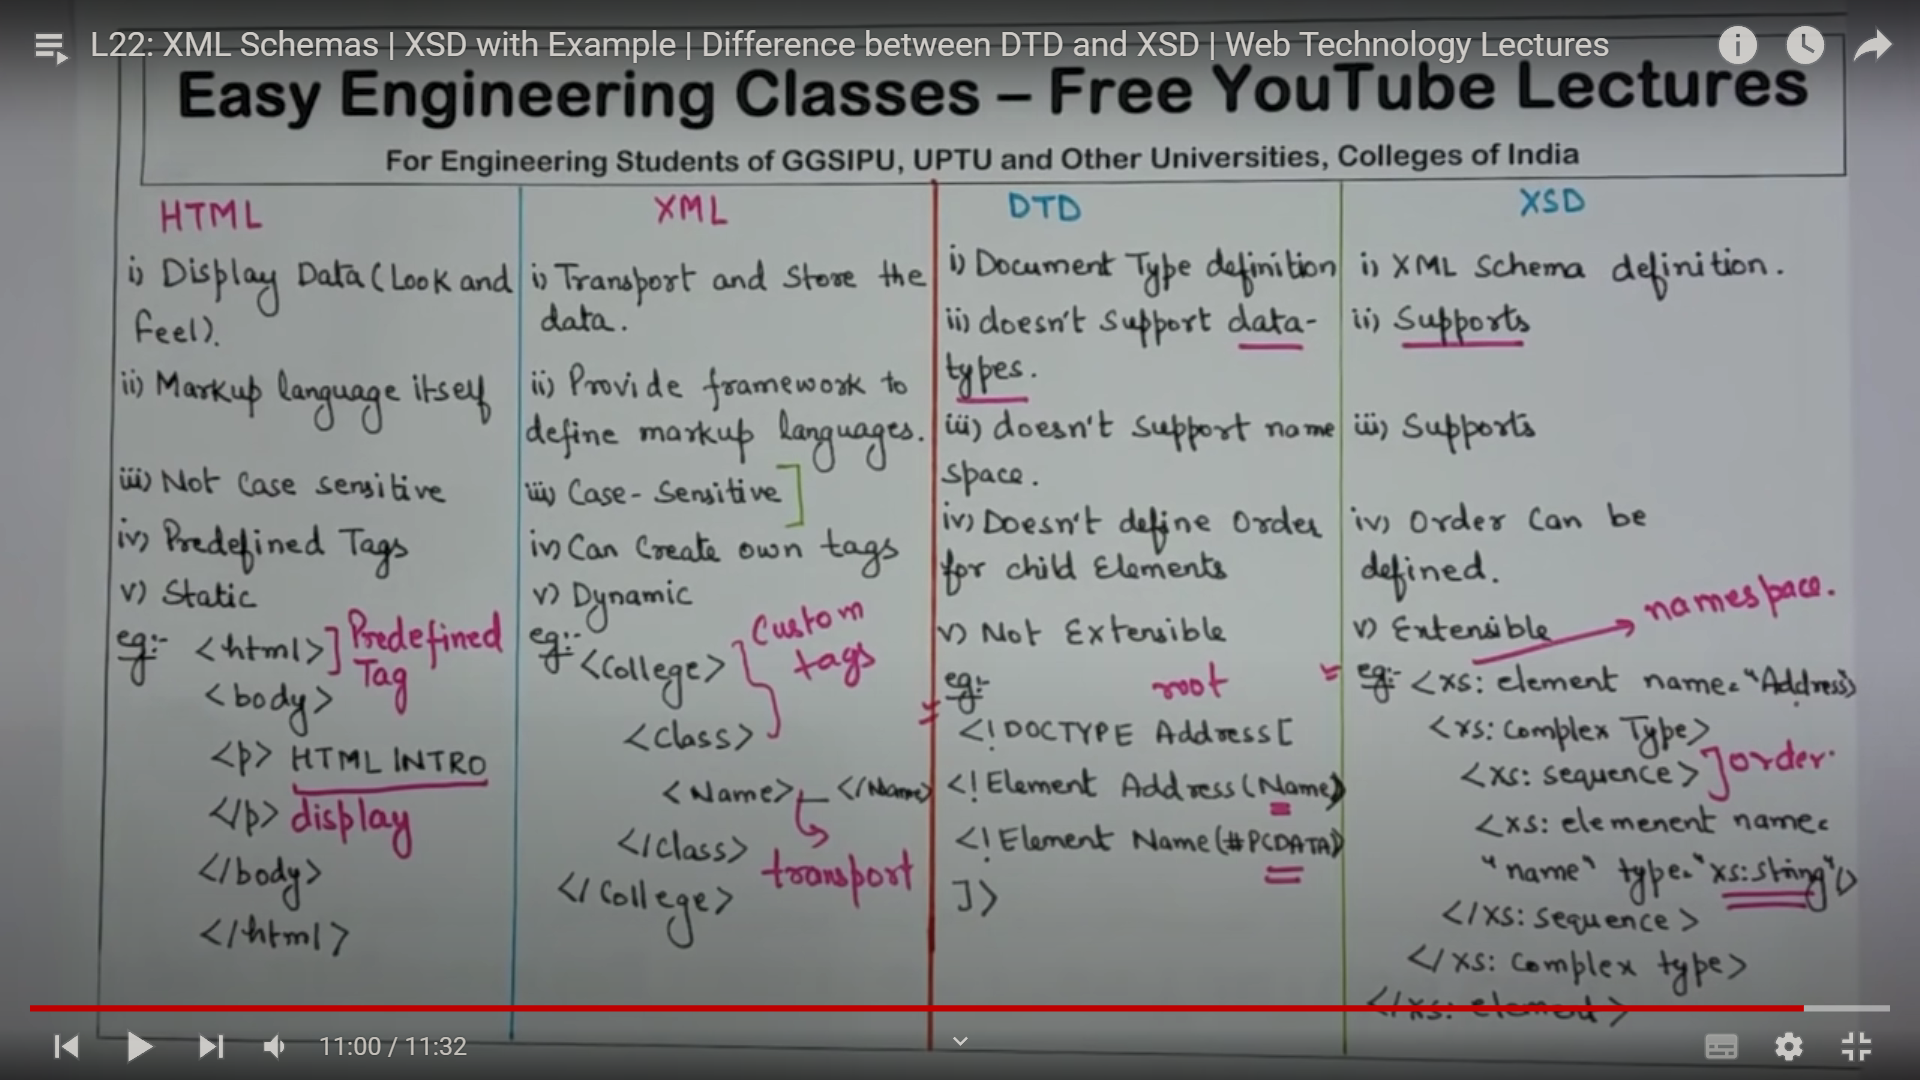 L22: XML Schemas | XSD with Example | Difference between DTD and XSD | Web Technology Lectures
Easy Engineering Classes – Free YouTube Lectures
For Engineering Students of GGSIPU, UPTU and Other Universities, Colleges of India
HTML
i) Display Data (Look and
feel).
ii) Markup language itself
iii) Not Case sensitive
iv) Predefined Tags
v) Static
eg:- <html> ] Predefined
Tag
<body>
<p> HTML INTRO
</p> display
</body>
</html>
XML
i) Transport and Store the
data.
ii) Provide framework to
define markup languages.
iii) Case-Sensitive ]
iv) Can Create own tags
v) Dynamic
eg:- <College> Custom
tags
<Class>
<Name> </Name>
</Class>
transport
</College>
DTD
i) Document Type definition
ii) doesn't support data-
types.
iii) doesn't support name
space.
iv) Doesn't define Order
for child Elements
v) Not Extensible
eg:- root
<!DOCTYPE Address[
<!Element Address(Name)
<!Element Name(#PCDATA)
]>
XSD
i) XML Schema definition.
ii) Supports
iii) Supports
iv) Order Can be
defined.
v) Extensible namespace.
eg:- <xs: element name="Address>
<xs: Complex Type>
<xs: sequence> ] order.
<xs: elemenent name=
"name" type="xs:string"/>
</xs: sequence>
</xs: Complex type>
</xs: element>
11:00 / 11:32